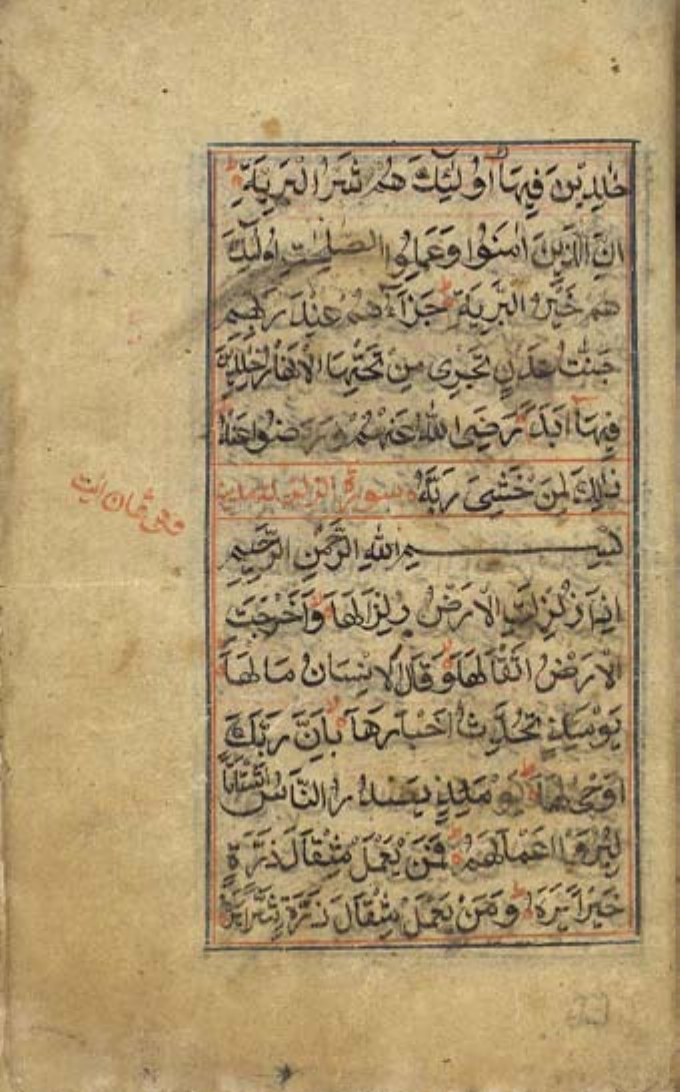 خٰلِدِيْنَ فِيْهَا اُولٰٓئِكَ هُمْ شَرُّ الْبَرِيَّةِ
اِنَّ الَّذِيْنَ اٰمَنُوْا وَعَمِلُوا الصّٰلِحٰتِ اُولٰٓئِكَ
هُمْ خَيْرُ الْبَرِيَّةِ جَزَآؤُهُمْ عِنْدَ رَبِّهِمْ
جَنّٰتُ عَدْنٍ تَجْرِى مِنْ تَحْتِهَا الْاَنْهٰرُ خٰلِدِيْنَ
فِيْهَا اَبَدًا رَضِىَ اللّٰهُ عَنْهُمْ وَرَضُوْا عَنْهُ
ذٰلِكَ لِمَنْ خَشِىَ رَبَّهُ سورة الزلزلة مدنية
بِسْمِ اللّٰهِ الرَّحْمٰنِ الرَّحِيْمِ
اِذَا زُلْزِلَتِ الْاَرْضُ زِلْزَالَهَا وَاَخْرَجَتِ
الْاَرْضُ اَثْقَالَهَا وَقَالَ الْاِنْسَانُ مَا لَهَا
يَوْمَئِذٍ تُحَدِّثُ اَخْبَارَهَا بِاَنَّ رَبَّكَ
اَوْحٰى لَهَا يَوْمَئِذٍ يَصْدُرُ النَّاسُ اَشْتَاتًا
لِيُرَوْا اَعْمَالَهُمْ فَمَنْ يَعْمَلْ مِثْقَالَ ذَرَّةٍ
خَيْرًا يَرَهُ وَمَنْ يَعْمَلْ مِثْقَالَ ذَرَّةٍ شَرًّا يَرَهُ
وهى ثمان ايت